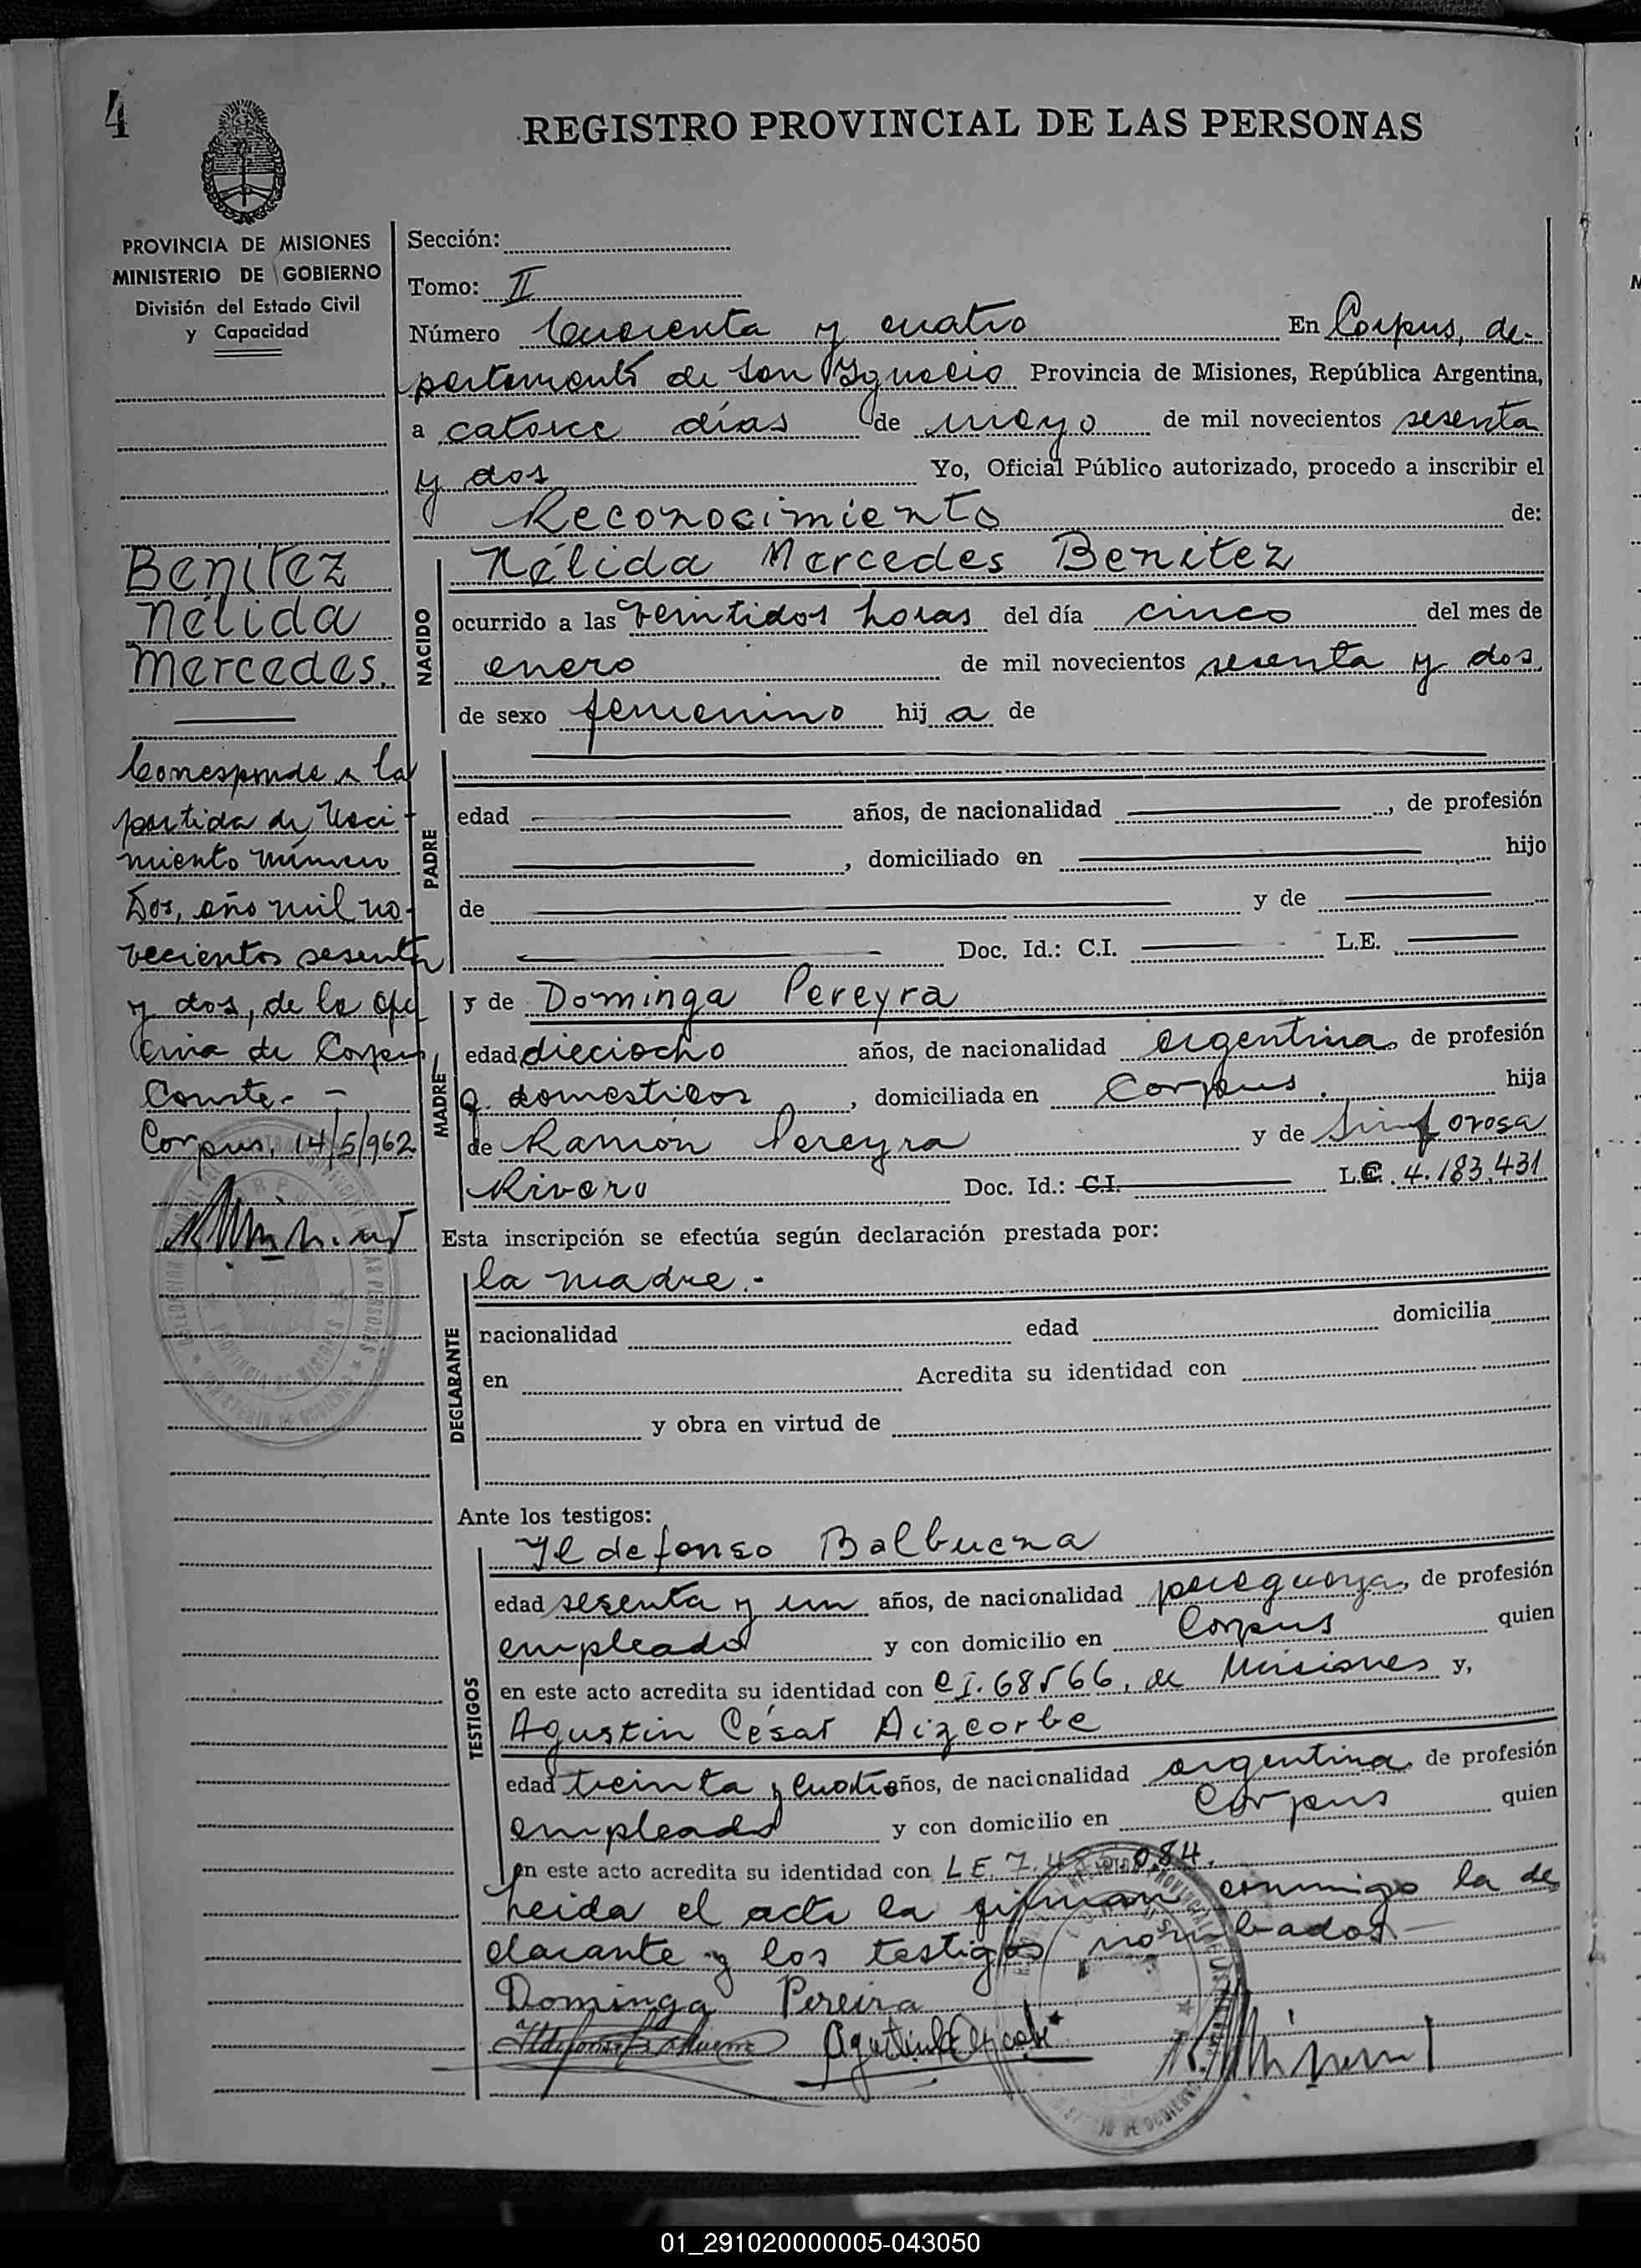 4
REGISTRO PROVINCIAL DE LAS PERSONAS
PROVINCIA DE MISIONES
MINISTERIO DE GOBIERNO
División del Estado Civil
y Capacidad
Sección:
Tomo: II
Número Cuarenta y cuatro En Corpus, de-
partamento de San Ygnacio Provincia de Misiones, República Argentina,
a catorce días de mayo de mil novecientos sesenta
y dos Yo, Oficial Público autorizado, procedo a inscribir el
Reconocimiento de:
Benítez
Nélida
Mercedes.
Corresponde a la
partida de Naci-
miento número
Dos, año mil no-
vecientos sesenta
y dos, de la Ofi
cina de Corpus,
Conste.-
Corpus, 14/5/962
NACIDO
Nélida Mercedes Benitez
ocurrido a las veintidos horas del día cinco del mes de
enero de mil novecientos sesenta y dos
de sexo femenino hij a de
PADRE
edad años, de nacionalidad , de profesión
, domiciliado en hijo
de y de
Doc. Id.: C.I. L.E.
MADRE
y de Dominga Pereyra
edad dieciocho años, de nacionalidad argentina, de profesión
q. domesticos , domiciliada en Corpus. hija
de Ramón Pereyra y de Sinforosa
Rivero Doc. Id.: C.I. L.C. 4.183.431
Esta inscripción se efectúa según declaración prestada por:
DECLARANTE
la madre.-
nacionalidad edad domicilia
en Acredita su identidad con
y obra en virtud de
Ante los testigos:
TESTIGOS
Yldefonso Balbuena
edad sesenta y un años, de nacionalidad paraguaya, de profesión
empleado y con domicilio en Corpus quien
en este acto acredita su identidad con C.I. 68566, de Misiones y,
Agustin César Aizcorbe
edad treinta y cuatro años, de nacionalidad argentina, de profesión
empleado y con domicilio en Corpus quien
en este acto acredita su identidad con L.E. 084.
Leida el acta la firman conmigo la de
clarante y los testigos nombados
Dominga Pereira
01_291020000005-043050